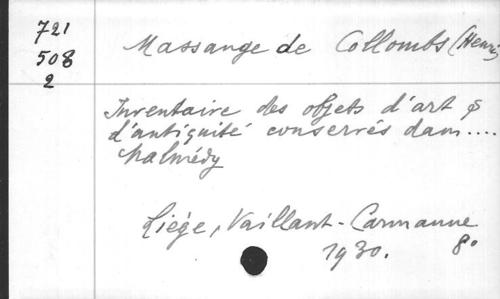 721
508
2
Massange de Collombs (Henri)
Inventaire des objets d'art &
d'antiquité conservés dans ....
Malmédy
Liége, Vaillant-Carmanne
1930. 8°